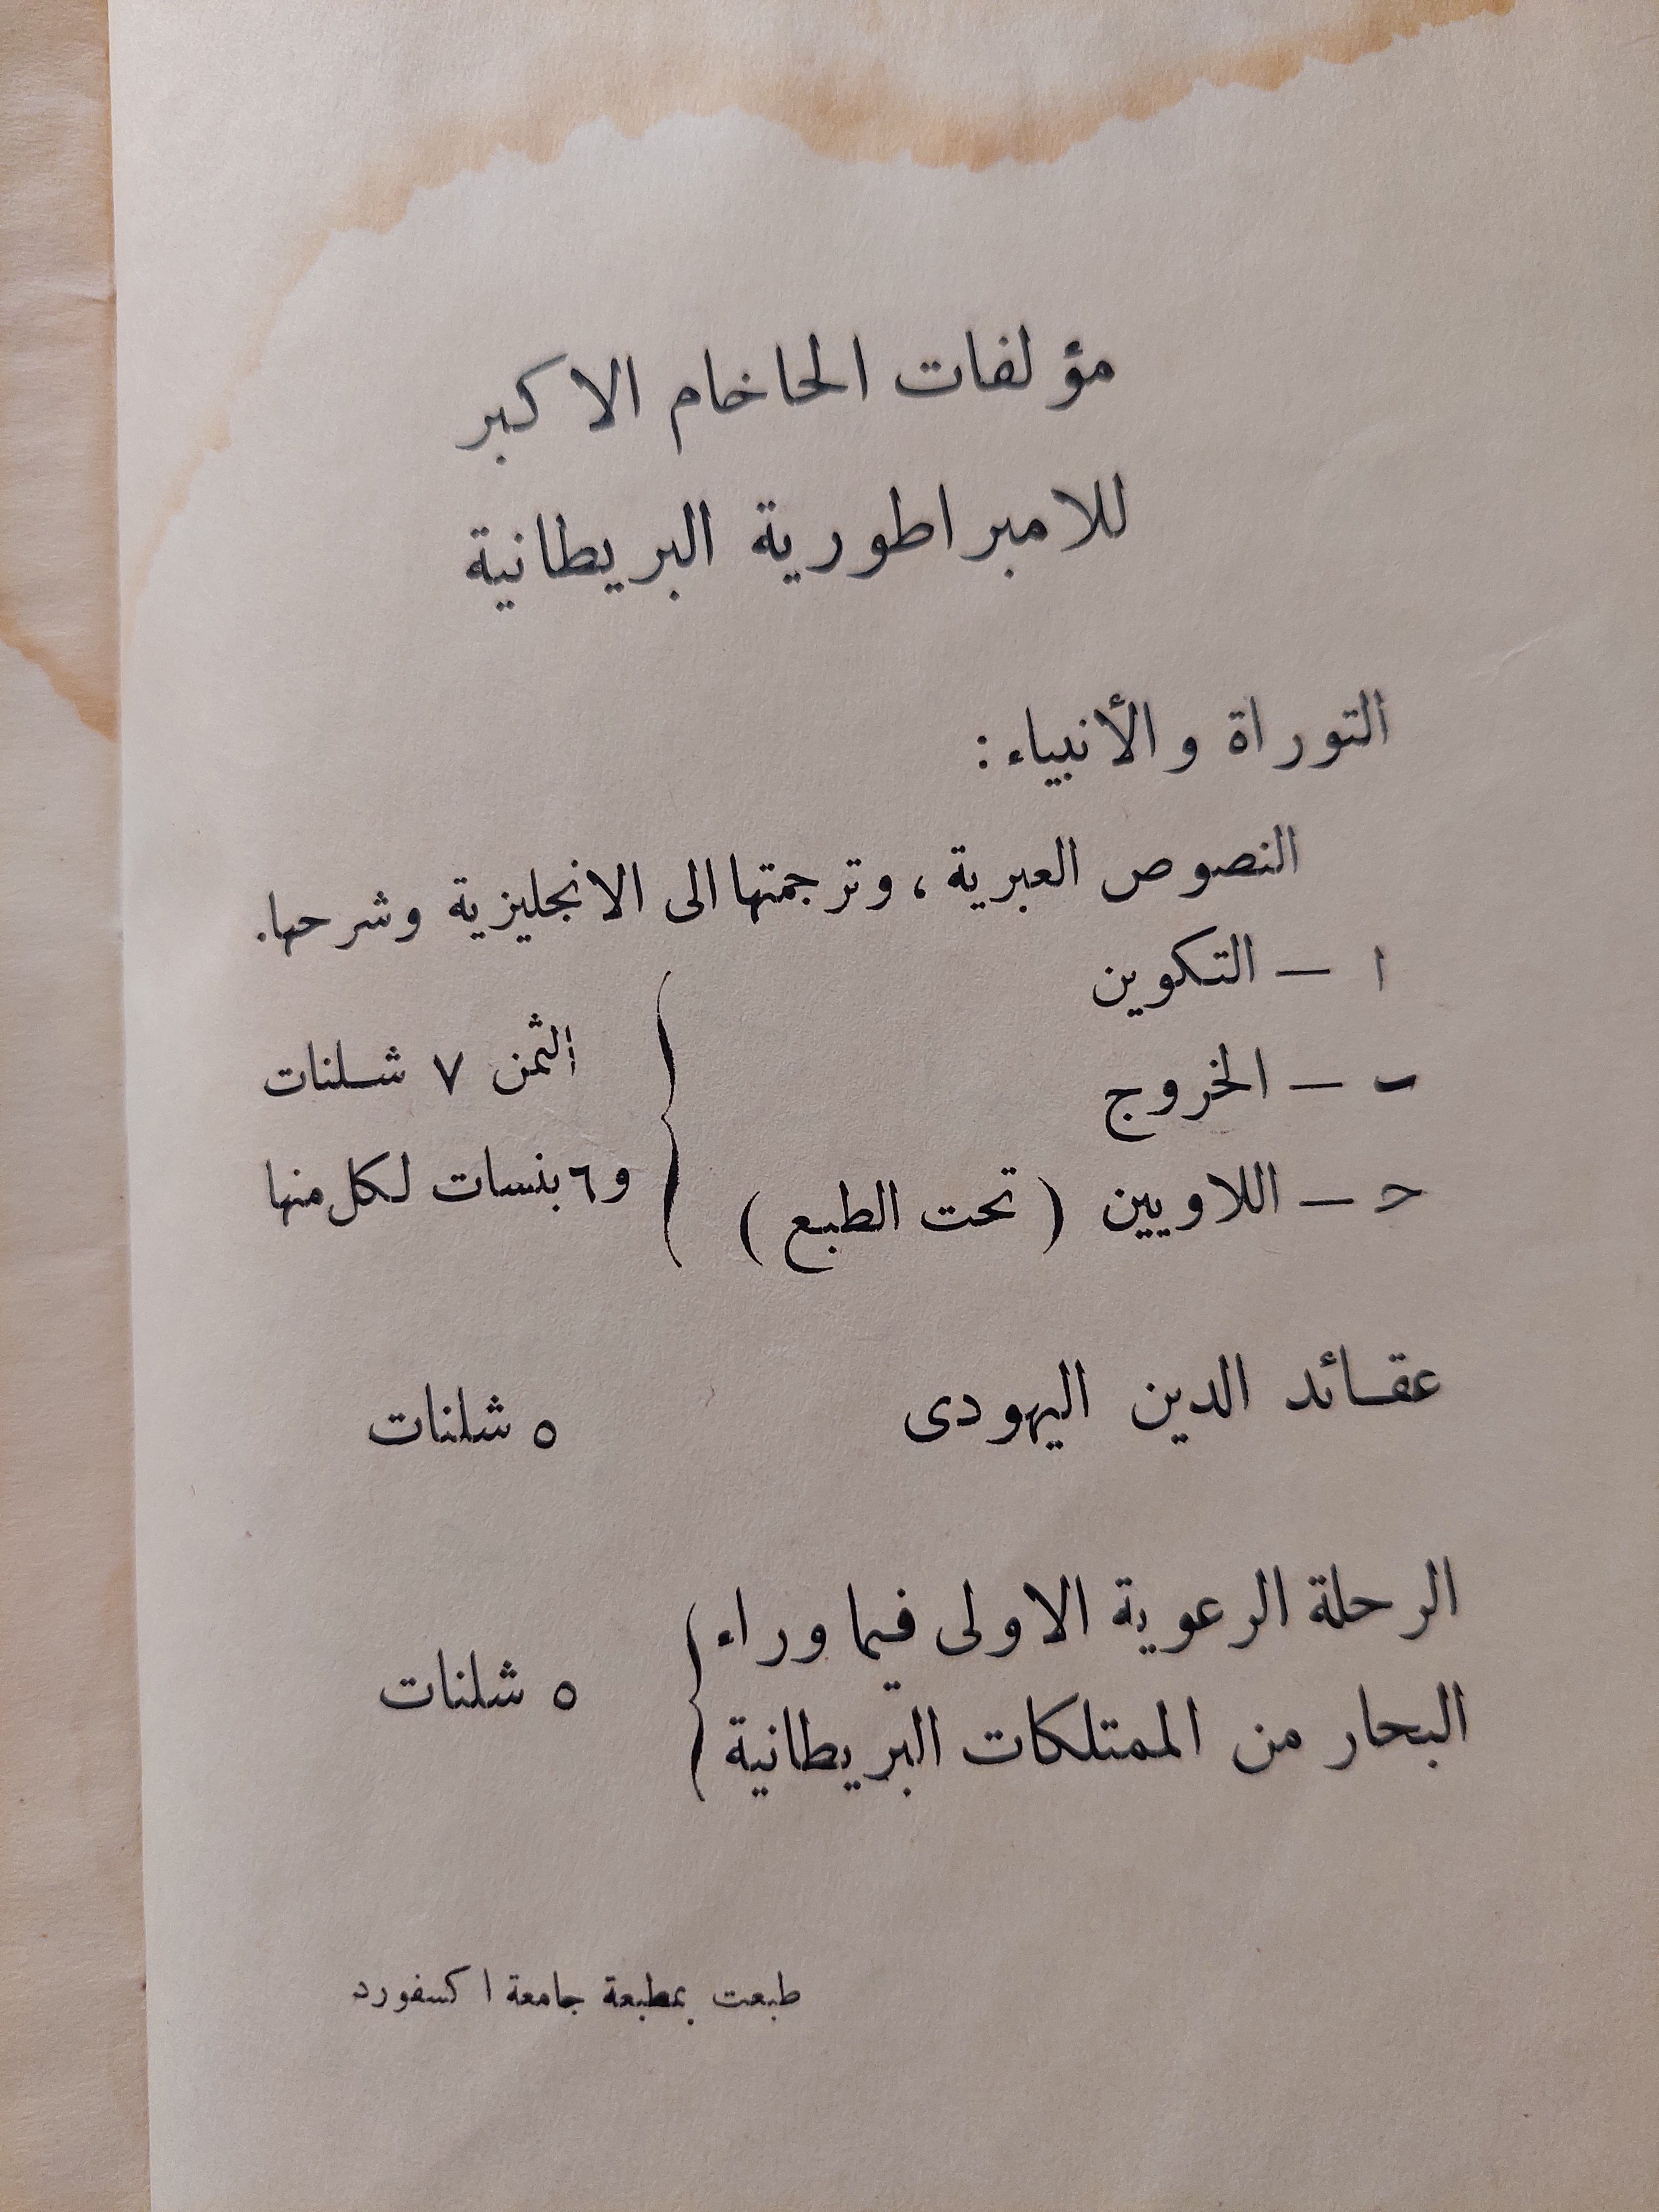 مؤلفات الحاخام الاكبر
للامبراطورية البريطانية
التوراة والأنبياء :
النصوص العبرية ، وترجمتها الى الانجليزية وشرحها .
ا – التكوين
ب – الخروج
الثمن ٧ شلنات
ح – اللاويين ( تحت الطبع )
و ٦ بنسات لكل منها
عقائد الدين اليهودى
٥ شلنات
الرحلة الرعوية الاولى فيما وراء
البحار من الممتلكات البريطانية
٥ شلنات
طبعت بمطبعة جامعة اكسفورد